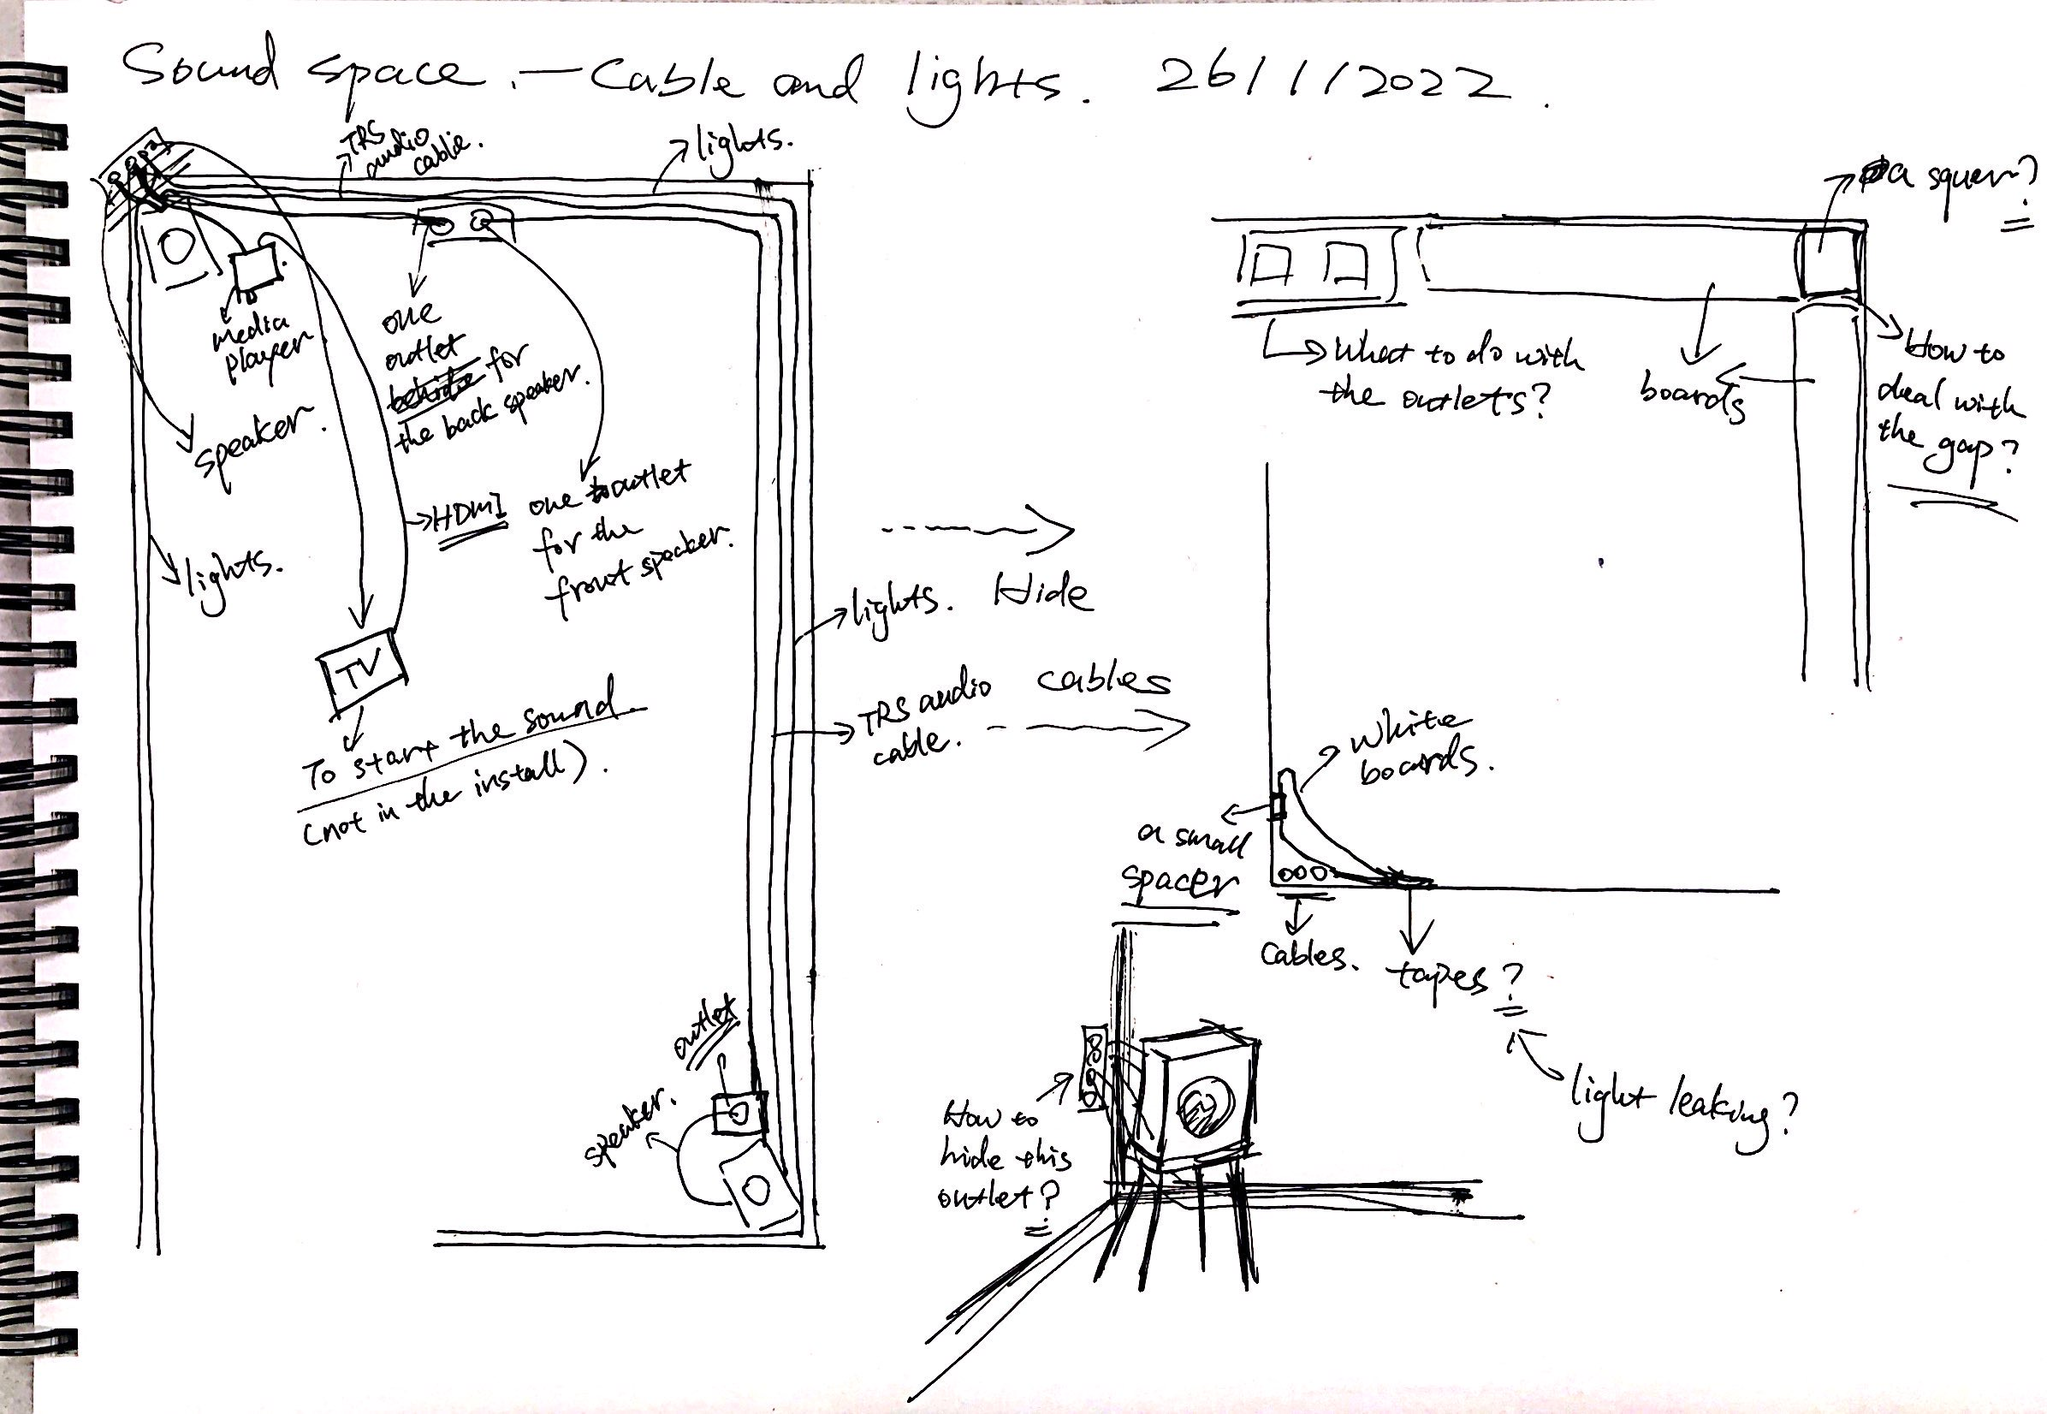 Sound space. — Cable and lights. 26/1/2022.
TRS
audio
cable.
lights.
media
player
speaker.
lights.
one
outlet
behide for
the back speaker.
HDMI
one to outlet
for the
front speaker.
TV
To start the sound
(not in the install).
lights.
TRS audio
cable.
outlet
speaker.
Hide
cables
a squer?
What to do with
the outlets?
boards
How to
deal with
the gap?
white
boards.
a small
spacer
Cables.
tapes?
light leaking?
How to
hide this
outlet?